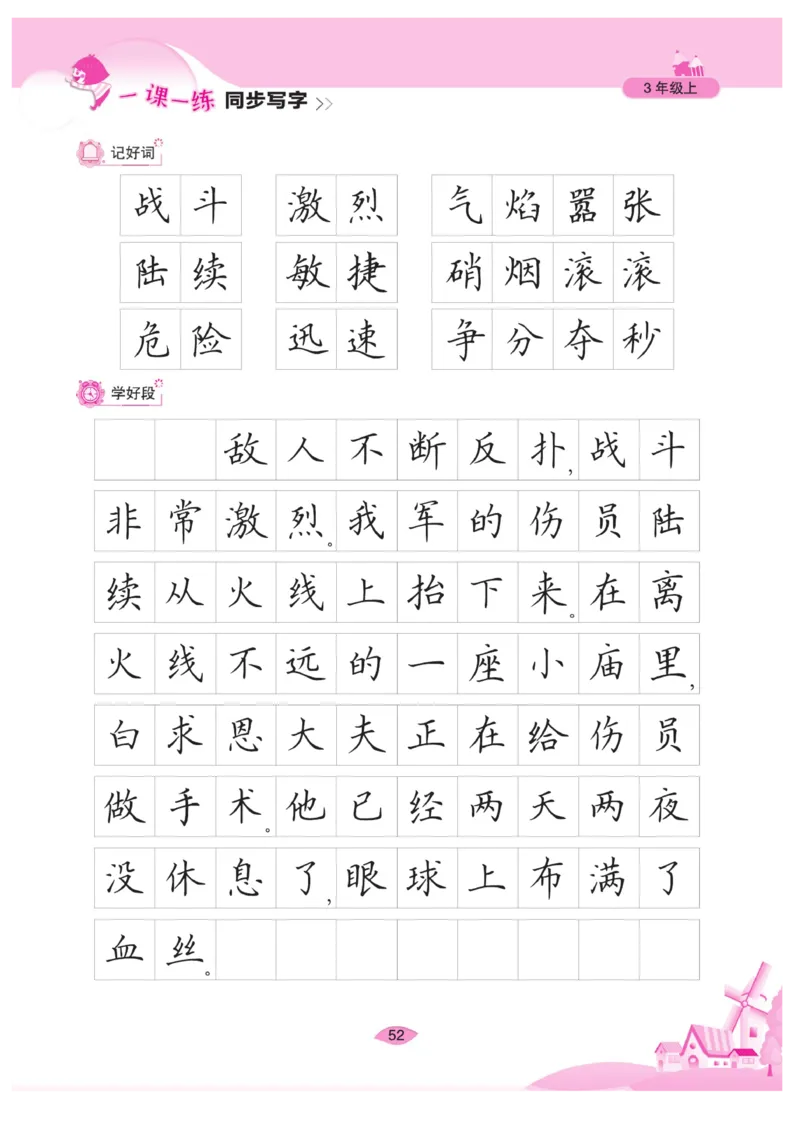 一课一练 同步写字
3年级上
记好词
战斗 激烈 气焰嚣张
陆续 敏捷 硝烟滚滚
危险 迅速 争分夺秒
学好段
敌人不断反扑,战斗
非常激烈。我军的伤员陆
续从火线上抬下来。在离
火线不远的一座小庙里,
白求恩大夫正在给伤员
做手术。他已经两天两夜
没休息了,眼球上布满了
血丝。
52